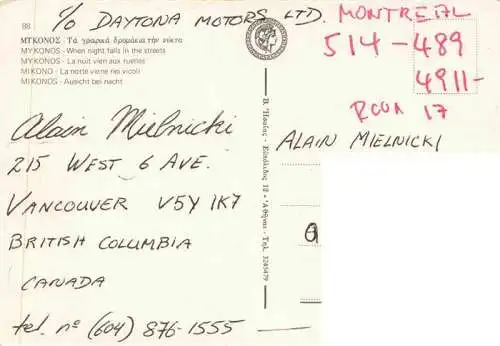 c/o DAYTONA MOTORS LTD.
88
ΜΥΚΟΝΟΣ - Τά γραφικά δρομάκια τήν νύκτα
MYKONOS - When night falls in the streets
MYKONOS - La nuit vien aux ruelles
MIKONO - La notte viene nei vicoli
MIKONOS - Aussicht bei nacht
Alain Mielnicki
215 WEST 6 AVE.
VANCOUVER V5Y 1K7
BRITISH COLUMBIA
CANADA
tel. nº (604) 876-1555
MONTREAL
514-489
4911-
ROOM 17
ALAIN MIELNICKI